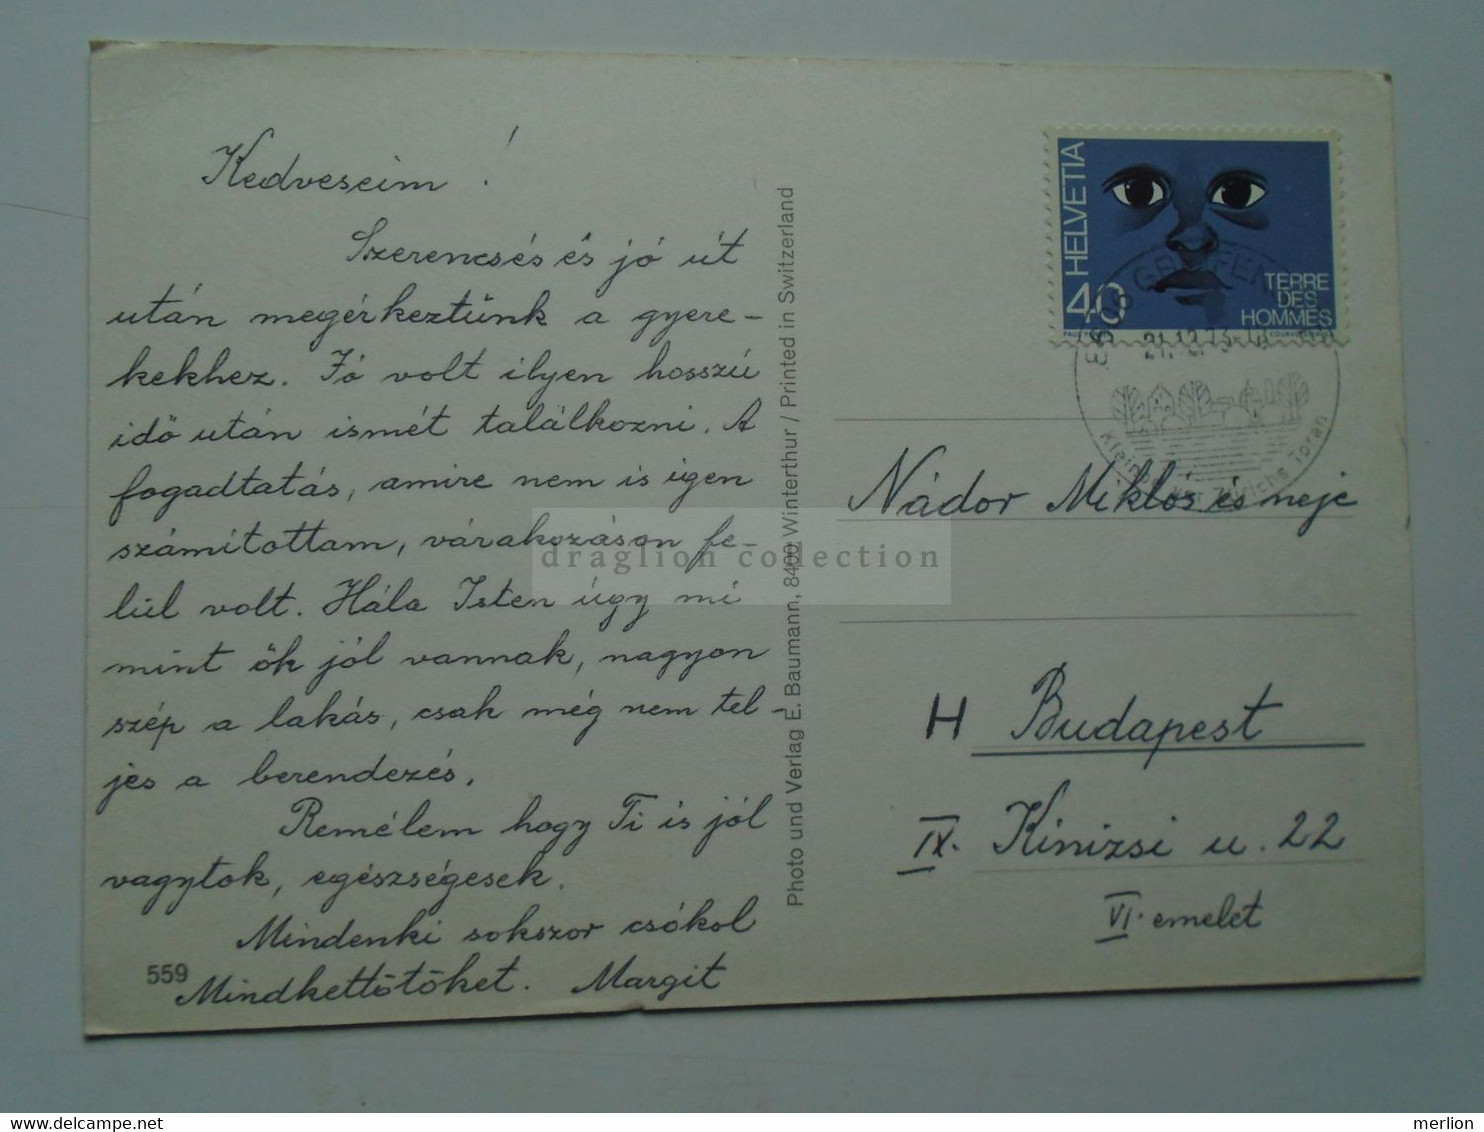 Kedveseim !
Szerencsés és jó út
után megérkeztünk a gyere-
kekhez. Jó volt ilyen hosszú
idő után ismét találkozni. A
fogadtatás, amire nem is igen
számítottam, várakozáson fe-
lül volt. Hála Isten úgy mi
mint ők jól vannak, nagyon
szép a lakás, csak még nem tel-
jes a berendezés.
Remélem hogy Ti is jól
vagytok, egészségesek.
Mindenki sokszor csókol
Mindkettőtöket. Margit
559
Photo und Verlag E. Baumann, 8400 Winterthur / Printed in Switzerland
HELVETIA
40
TERRE
DES
HOMMES
21.12.73
Zürichs Toran
Nádor Miklós és neje
H Budapest
IX. Kinizsi u. 22
VI. emelet
draglion collection
merlion
delcampe.net